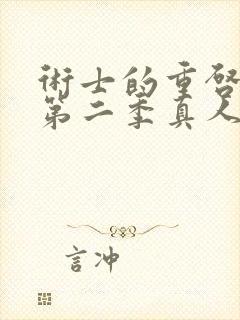 術士的重啓
第二季真人
言冲